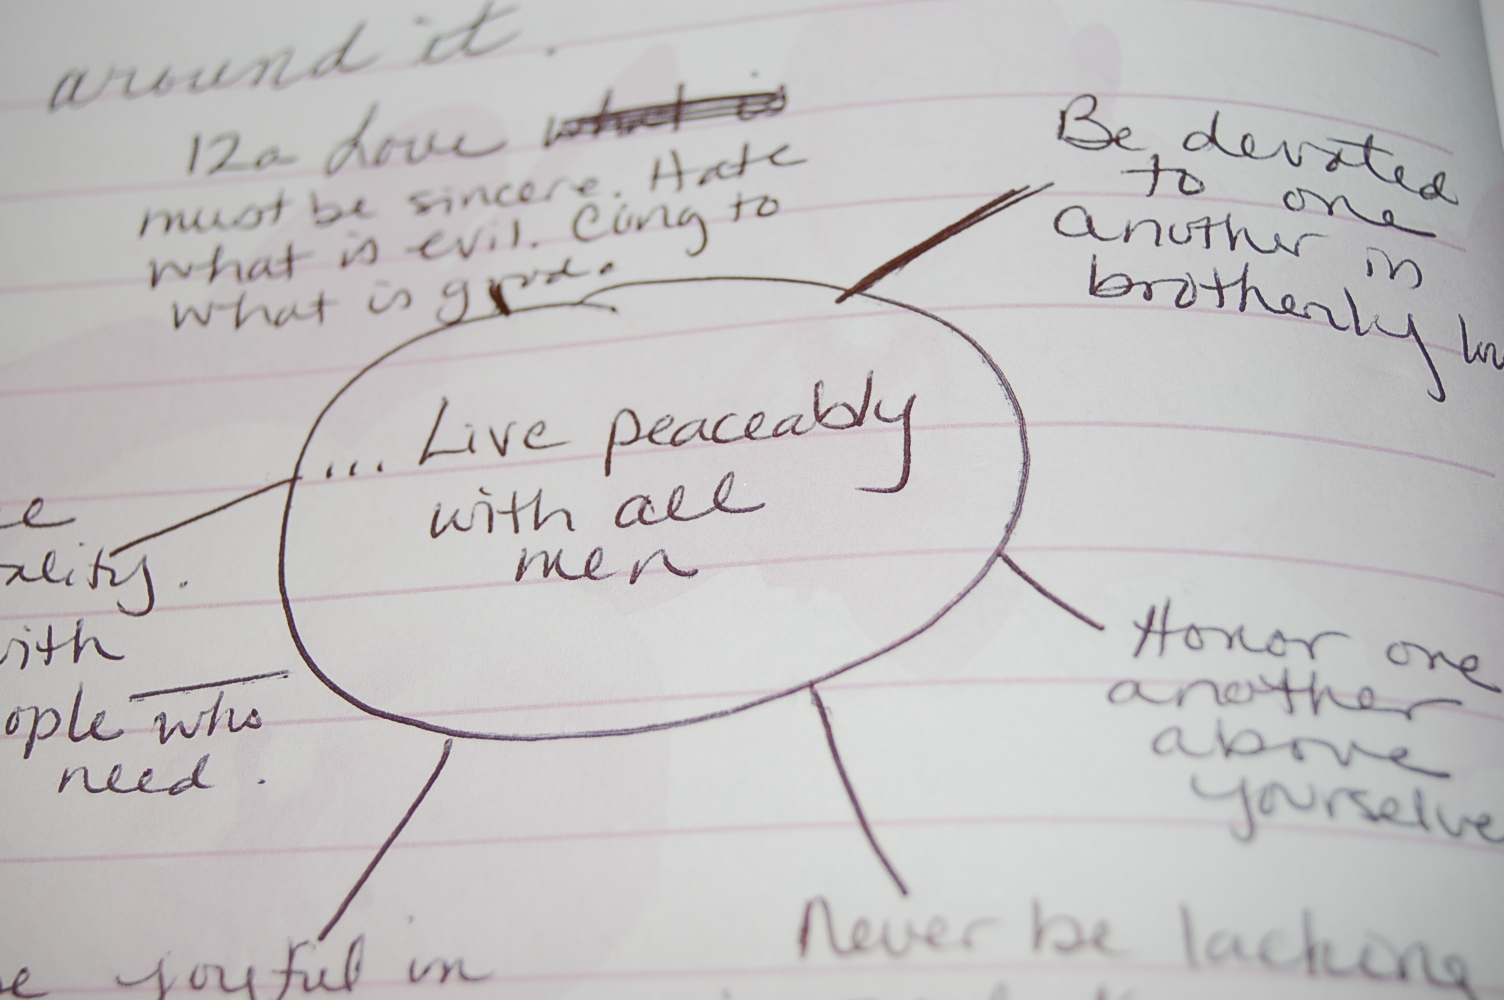 around it.
12a Love what is
must be sincere. Hate
what is evil. Cling to
what is good.
Be devoted
to one
another in
brotherly lov
... Live peaceably
with all
men
e
ality.
with
ople who
need.
Honor one
another
above
yourselve
Never be lacking
e joyful in